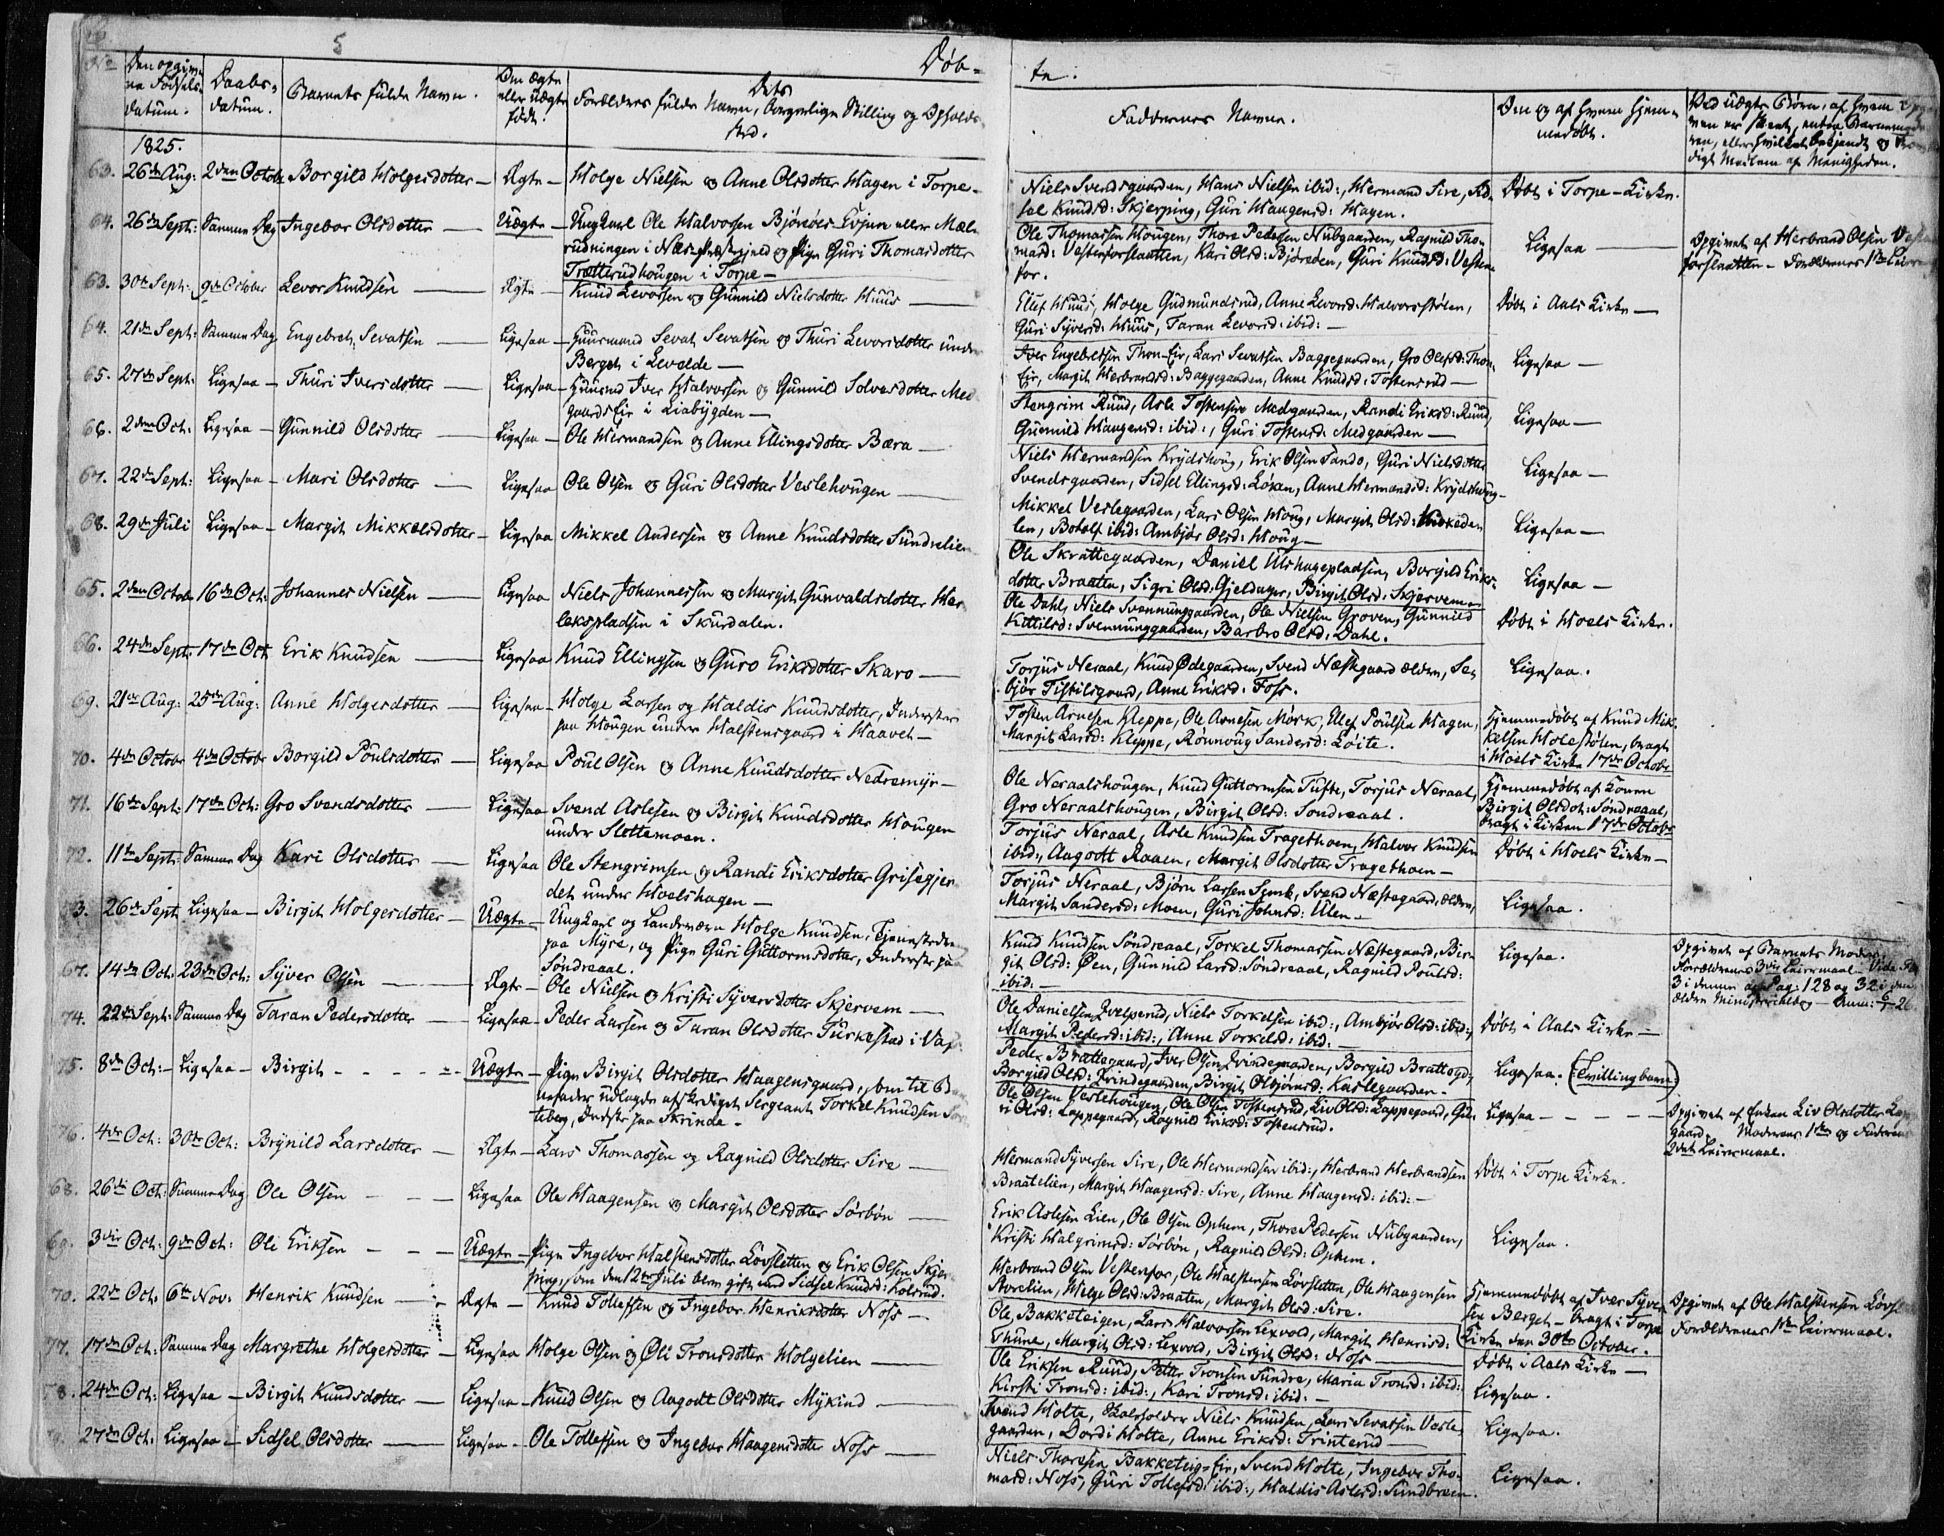 5
Døb-
te.
No
Den opgiv-
ne Fødsels-
datum.
Daabs-
datum.
Barnets fulde Navn.
Om ægte
eller uægte
født.
Dets
Forældres fulde Navn, borgerlige Stilling og Opholds-
sted.
Faddernes Navne.
Om og af hvem hjem-
medøbt.
Ved uægte Børn, af hvem
1825.
63. 26de Aug: 2den Octobr Borgild Holgersdotter — Ægte — Holge Nielsen og Anne Olsdotter Hagen i Torpe —
Niels Svendsgaarden, Hans Nielsen ibid:, Hermand Sire,
Knudsd: Skjerping, Guri Haagensd: Hagen.
Døbt i Torpe-Kirke.
64. 26de Sept: Samme Dag Ingebor Olsdotter — Uægte — Ungkarl Ole Halvorsen Bjøreøes Evjen eller Mæl-
rudningen i Næs Præstegjeld og Pige Guri Thomasdotter
Trøtterudhougen i Torpe —
Ole Thomassen Hougen, Thore Pedersen Nubgaarden, Ragnild Tho-
masd: Vesterforslaatten, Kari Olsd: Bjøreøen, Guri Knudsd: Vesten-
for.
Ligesaa —
Opgivet af Herbrand Olsen
forslaatten — Forældrenes 1ste
63. 30te Sept: 9de October Levor Knudsen — Ægte — Knud Levorsen og Gunnild Nielsdotter Huus —
Ellef Huus, Holge Gudmundsrud, Anne Levord: Halvorsstølen,
Guri Syversd: Huus, Taran Levorsd: ibid: —
Døbt i Aals Kirke —
64. 21de Sept: Samme Dag Engebret Sevatsen — Ligesaa — Huusmand Sevat Sevatsen og Thuri Levorsdotter under
Berget i Levalde —
Iver Engebretsen Thon-Eie, Lars Sevatsen Baggegaarden, Gro Olefsd: Thon-
Eie, Margit Herbrandsd: Baggegaarden, Anne Knudsd: Tostensrud —
Ligesaa —
65. 27de Sept: Ligesaa — Thuri Iversdotter — Ligesaa — Huusmd Iver Halvorsen og Gunnild Solvesdotter Med-
gaardsEie i Liabygden —
Stengrim Ruud, Asle Tostensen Medgaarden, Randi Eriksd: Ruud,
Gunnild Haagensd: ibid:, Guri Tostensd: Medgaarden —
Ligesaa —
66. 2den Oct: Ligesaa — Gunnild Olsdotter — Ligesaa — Ole Hermandsen og Anne Ellingsdotter Bæra —
Niels Hermandsen Krydshoug, Erik Olsen Sando, Guri Nielsdotter
Svendsgaarden, Sidsel Ellingsd: Løken, Anne Hermandsd: Krydshoug —
Ligesaa —
67. 22de Sept: Ligesaa — Mari Olsdotter — Ligesaa Ole Olsen og Guri Olsdotter Veslehougen —
Mikkel Veslegaarden, Lars Olsen Houg, Margit Olsd:
len, Botolf ibid: Ambjør Olsd: Houg —
Ligesaa —
68. 29de Juli Ligesaa — Margit Mikkelsdotter — Ligesaa Mikkel Andersen og Anne Knudsdotter Sundrelien
Ole Skrattegaarden, Daniel Ulshagepladsen, Borgild Eriks-
dotter Braaten, Sigri Olsd: Gjeldager, Birgit Olsd: Skjervem —
Ligesaa —
65. 2den Octobr 16de Oct: Johannes Nielsen — Ligesaa Niels Johannessen og Margit Gunvaldsdotter Her-
lekspladsen i Skurdalen.
Ole Dahl, Niels Svennunggaarden, Ole Nielsen Groven, Gunnild
Kittilsd: Svennunggaarden, Barbro Olsd: Dahl.
Døbt i Hoels Kirke.
66. 24de Sept: 17de Oct Erik Knudsen — Ligesaa Knud Ellingsen og Guro Eriksdotter Skaro —
Torjus Neraal, Knud Ødegaarden, Svend Næstegaard ælden, Se-
bjør Tistilsgaard, Anne Eriksd: Foss.
Ligesaa.
69. 21de Aug: 25de Aug: Anne Holgersdotter — Ligesaa — Holge Larsen og Haldis Knudsdotter, Inderster
paa Hougen under Halstensgaard i Haavet —
Tosten Arnesen Kleppe, Ole Arnesen Mørk, Ellef Poulsen Hagen,
Margit Larsd: Kleppe, Rønnoug Sandersd: Løite.
Hjemmedøbt af Knud Mik-
kelsen Holestølen, bragt
i Hoels Kirke 17de Octobr
70. 4de Octobr 4de Octobr Borgild Poulsdotter — Ligesaa Poul Olsen og Anne Knudsdotter Nedremyr —
Ole Neraalshougen, Knud Guttormsen Tufte, Torjus Neraal,
Gro Neraalshougen, Birgit Olsd: Sondreaal.
Hjemmedøbt af Konen
Birgit Olsdot: Søndreaal,
bragt i Kirken 17de Octobr
71. 16de Sept: 17de Oct: Gro Svendsdotter — Ligesaa Svend Aslesen og Birgit Knudsdotter Hougen
under Slettemoen.
Torjus Neraal, Asle Knudsen Tragethoen, Halvor Knudsen
ibid:, Aagodt Raaen, Margit Olsdotter Tragethoen —
Døbt i Hoels Kirke —
72. 11te Sept: Samme Dag Kari Olsdotter — Ligesaa Ole Stengrimsen og Randi Eriksdotter Grisegjer-
det under Hoelshagen —
Torjus Neraal, Bjørn Larsen Lund, Svend Næstegaard, ælden,
Margit Sandersd: Moen, Guri Johnsd: Ulen —
Ligesaa.
73. 26de Sept Ligesaa — Birgit Holgersdotter — Uægte — Ungkarl og Landeværn Holge Knudsen, Tjenestedræng
paa Myre, og Pige Guri Guttormsdotter, Inderste paa
Søndreaal.
Knud Knudsen Søndreaal, Torkel Thomassen Næstegaard, Bir-
git Olsd: Øen, Gunnild Larsd: Søndreaal, Ragnild Poulsd:
ibid: —
Ligesaa.
Opgivet af Barnets Moder.
Forældrenes 3die Leiermaal — Vide
3 i denne og Pag: 128 og 32 i den
ælden Ministerialbog —
67. 14de Oct: 23de Oct: Syver Olsen — Ægte — Ole Nielsen og Kristi Syversdotter Skjervem —
Ole Danielsen Kvelprud, Niels Torkelsen ibid:, Ambjør Olsd: ibid:,
Margit Pedersd: ibid:, Anne Torkelsd: ibid: —
Døbt i Aals Kirke —
74. 22de Sept: Samme Dag Taran Pedersdotter — Ligesaa — Peder Larsen og Taran Olsdotter Turkestad i Vas
Peder Brattegaard, Iver Olsen Kvindegaarden, Borgild Brattegd:,
Borgild Olsd: Kvindegaarden, Birgit Asbjørnsd: Karlsgaarden —
Ligesaa. (Tvillingbarn)
75. 8de Oct: — Ligesaa — Birgit - - - - - Uægte — Pige Birgit Olsdotter Haagensgaard, som til Bar-
nefader udlagde afskediget Sergeant Torkel Knudsen
teberg, Inderste paa Skrinde —
Ole Olsen Veslehougen, Ole Olsen Tostensrud, Liv Olsd: Lappegaard, Gu-
ri Olsd: Lappegaard, Ragnild Eriksd: Tostensrud.
Ligesaa - - -
Opgivet af Enken Liv Olsdotter Lap-
gaard. Moderens 1ste og Faderens
2det Leiermaal.
76. 4de Oct: 30te Oct: Brynild Larsdotter — Ægte — Lars Thomassen og Ragnild Olsdotter Sire —
Hermand Syversen Sire, Ole Hermandsen ibid:, Herbrand Herbrandsen
Braatelien, Margit Haagensd: Sire, Anne Haagensd: ibid: —
Døbt i Torpe Kirke.
68. 26de Oct: Samme Dag Ole Olsen - - - Ligesaa Ole Haagensen og Margit Olsdotter Sørbøn —
Erik Aslesen Lien, Ole Olsen Ophem, Thore Pedersen Nubgaarden,
Kristi Halgrimsd: Sørbøn, Ragnild Olsd: Ophem.
Ligesaa.
69. 3die Oct: 9de Oct: Ole Eriksen - - - Uægte — Pige Ingebor Halstensdotter Løvsletten og Erik Olsen Skjer-
ping, som den 12te Juli blev gift med Sidsel Knudsd: Kolsrud.
Herbrand Olsen Vestenfor, Ole Halstensen Løvsletten, Ole Haagensen
Storelien, Helge Olsd: Braaten, Margit Olsd: Sire.
Opgivet af Ole Halstensen
Forældrenes 1ste Leiermaal.
70. 22de Oct: 6te Nov: Henrik Knudsen — Ægte — Knud Tollefsen og Ingebor Henriksdotter Noss —
Ole, Bakketeigen, Lars Halvorsen Lexvold, Margit Henrisd:
Thune, Margit Olsd: Lexvold, Birgit Olsd: Noss —
Hjemmedøbt af Iver Syver-
sen Berget — bragt i Torpe
Kirke den 30te October.
Døbt i Aals Kirke —
77. 17de Oct: Samme Dag Margrethe Holgersdotter — Ligesaa Holge Olsen og Oli Tronsdotter Holgelien —
Ole Eriksen Ruud, Petter Tronsen Sundre, Maria Tronsd: ibid:
Kirsti Tronsd: ibid:, Kari Tronsd: ibid: —
Ligesaa.
78. 24de Oct: Ligesaa — Birgit Knudsdotter — Ligesaa — Knud Olsen og Aagodt Olsdotter Mykind —
Svend Holte, Skoleholder Niels Knudsen, Lars Sevatsen Vesle-
gaarden, Dordi Holte, Anne Eriksd: Trinterud —
Ligesaa.
27de Oct: Ligesaa — Sidsel Olsdotter — Ligesaa — Ole Tollefsen og Ingebor Haagensdotter Noss —
Niels Thoresen Bakketeig-Eie, Svend Holte, Ingebor Tho-
masd: Noss, Guri Tollefsd: ibid:, Haldis Aslesd: Sundbreen.
Ligesaa.